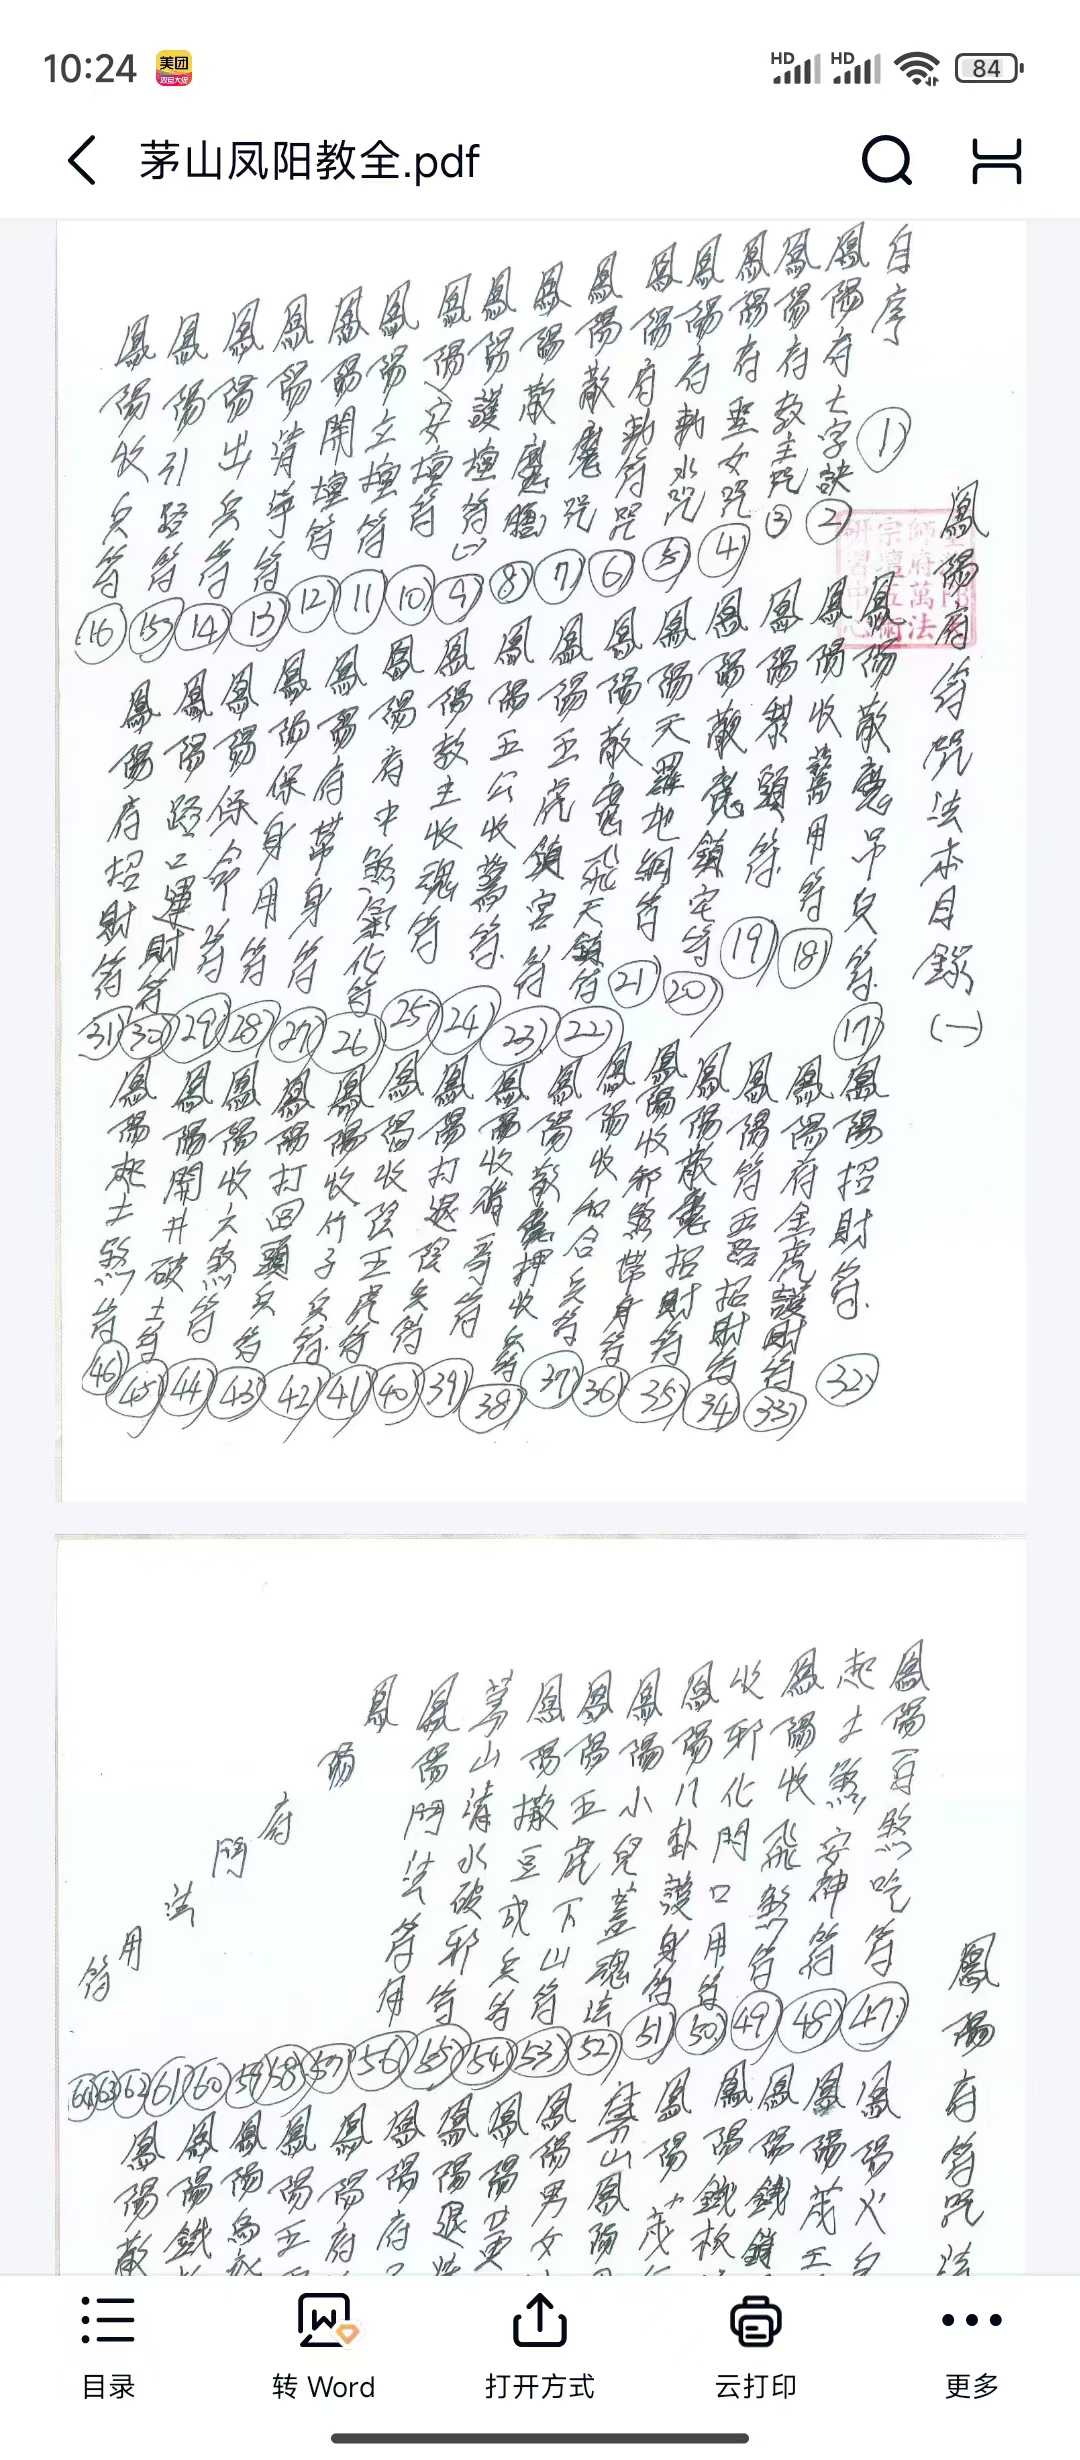 10:24
美团
HD
HD
84
茅山凤阳教全.pdf
鳳陽府符咒法本目錄(一)
自序 ①
鳳陽府七字訣 ②
鳳陽府教主咒 ③
鳳陽府聖女咒 ④
鳳陽府勅水咒 ⑤
鳳陽府勅符咒 ⑥
鳳陽散魔咒 ⑦
鳳陽散魔 ⑧
鳳陽護壇符 ⑨
鳳陽安壇符 ⑩
鳳陽立壇符 11
鳳陽開壇符 12
鳳陽清淨符 13
鳳陽出兵符 14
鳳陽引路符 15
鳳陽收兵符 16
鳳陽散魔吊兵符 17
鳳陽收驚用符 18
鳳陽犁頭符 19
鳳陽散魔鎮宅符 20
鳳陽天羅地網符 21
鳳陽散魔飛天鎮符 22
鳳陽五虎鎮宮符 23
鳳陽五公收驚符 24
鳳陽教主收魂符 25
鳳陽府中煞氣化符 26
鳳陽府帶身符 27
鳳陽保身用符 28
鳳陽保命符 29
鳳陽路口運財符 30
鳳陽府招財符 31
鳳陽招財符 32
鳳陽府金虎護財符 33
鳳陽符五路招財符 34
鳳陽散魔招財符 35
鳳陽收邪煞帶身符 36
鳳陽收和合兵符 37
鳳陽散魔押收兵符 38
鳳陽收猪哥符 39
鳳陽打退陰兵符 40
鳳陽收陰五虎符 41
鳳陽收竹子兵符 42
鳳陽打回頭兵符 43
鳳陽收六煞符 44
鳳陽開井破土符 45
鳳陽起土煞符 46
鳳陽府符咒法
鳳陽百煞吃符 47
起土煞安神符 48
鳳陽收飛煞符 49
收邪化門口用符 50
鳳陽八卦護身符 51
鳳陽小兒蓋魂法 52
鳳陽五虎下山符 53
鳳陽撒豆成兵符 54
茅山清水破邪符 55
鳳陽鬥法符用 56
鳳陽府鬥法用符
57
58
59
60
61
62
63
64
鳳陽火
鳳陽茂
鳳陽鐵
鳳陽鐵板
鳳陽茂
茅山鳳陽
鳳陽男女
鳳陽
鳳陽退
鳳陽府
鳳陽府
鳳陽五
鳳陽
鳳陽鐵
鳳陽散
目录
转 Word
打开方式
云打印
更多